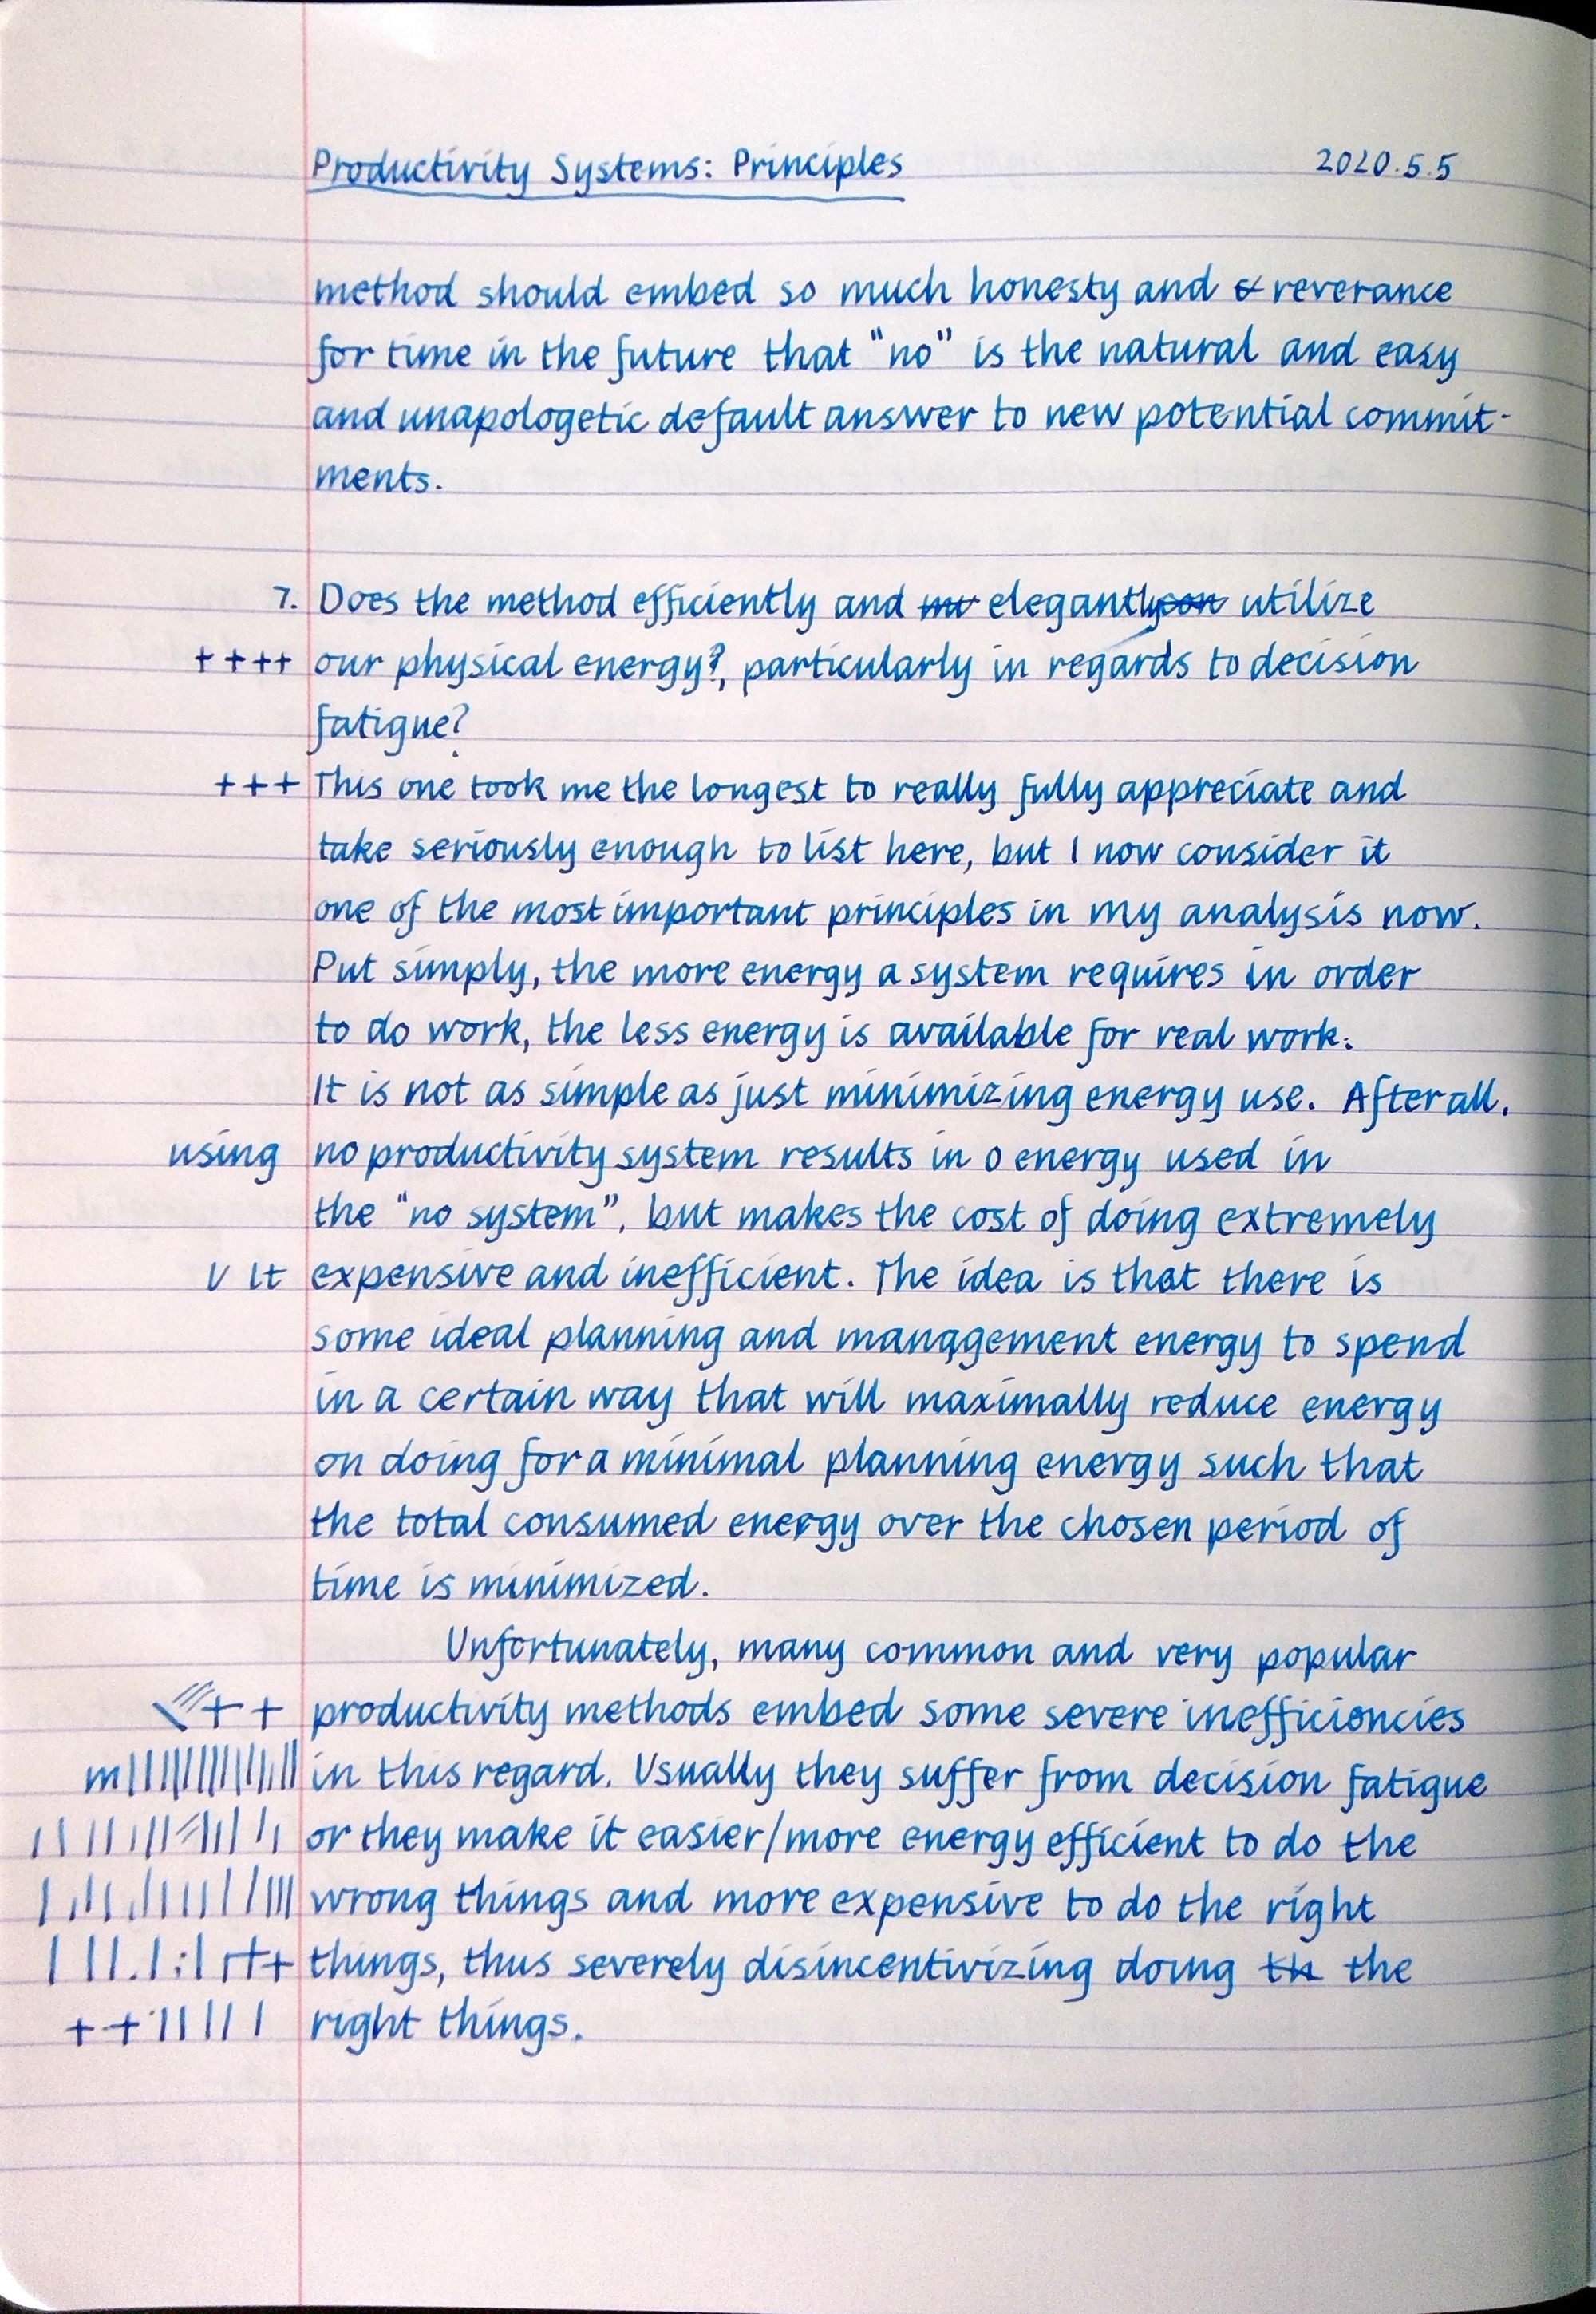 Productivity Systems: Principles 2020.5.5
method should embed so much honesty and reverance
for time in the future that "no" is the natural and easy
and unapologetic default answer to new potential commit-
ments.
7. Does the method efficiently and elegantly utilize
++++ our physical energy?, particularly in regards to decision
fatigue?
+++ This one took me the longest to really fully appreciate and
take seriously enough to list here, but I now consider it
one of the most important principles in my analysis now.
Put simply, the more energy a system requires in order
to do work, the less energy is available for real work.
It is not as simple as just minimizing energy use. After all,
using no productivity system results in 0 energy used in
the "no system", but makes the cost of doing extremely
expensive and inefficient. The idea is that there is
some ideal planning and management energy to spend
in a certain way that will maximally reduce energy
on doing for a minimal planning energy such that
the total consumed energy over the chosen period of
time is minimized.
Unfortunately, many common and very popular
productivity methods embed some severe inefficiencies
in this regard. Usually they suffer from decision fatigue
or they make it easier/more energy efficient to do the
wrong things and more expensive to do the right
things, thus severely disincentivizing doing the
right things.